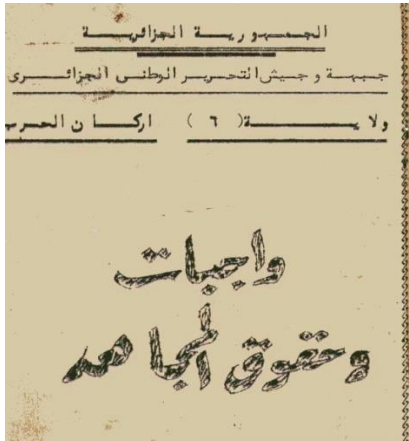 الجمهورية الجزائرية
جبهة و جيش التحرير الوطني الجزائري
ولاية ( ٦ ) اركان الحرب
واجبات
وحقوق المجاهد